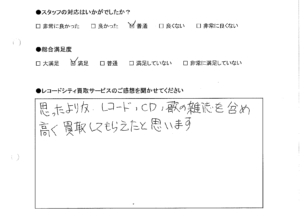 ●スタッフの対応はいかがでしたか？
□ 非常に良かった □ 良かった ☑ 普通 □ 良くない □ 非常に良くない
●総合満足度
□ 大満足 ☑ 満足 □ 普通 □ 満足していない □ 非常に満足していない
●レコードシティ買取サービスのご感想を聞かせてください
思ったよりな レコード，CD，歌の雑誌も含め
高く買取してもらえたと思います